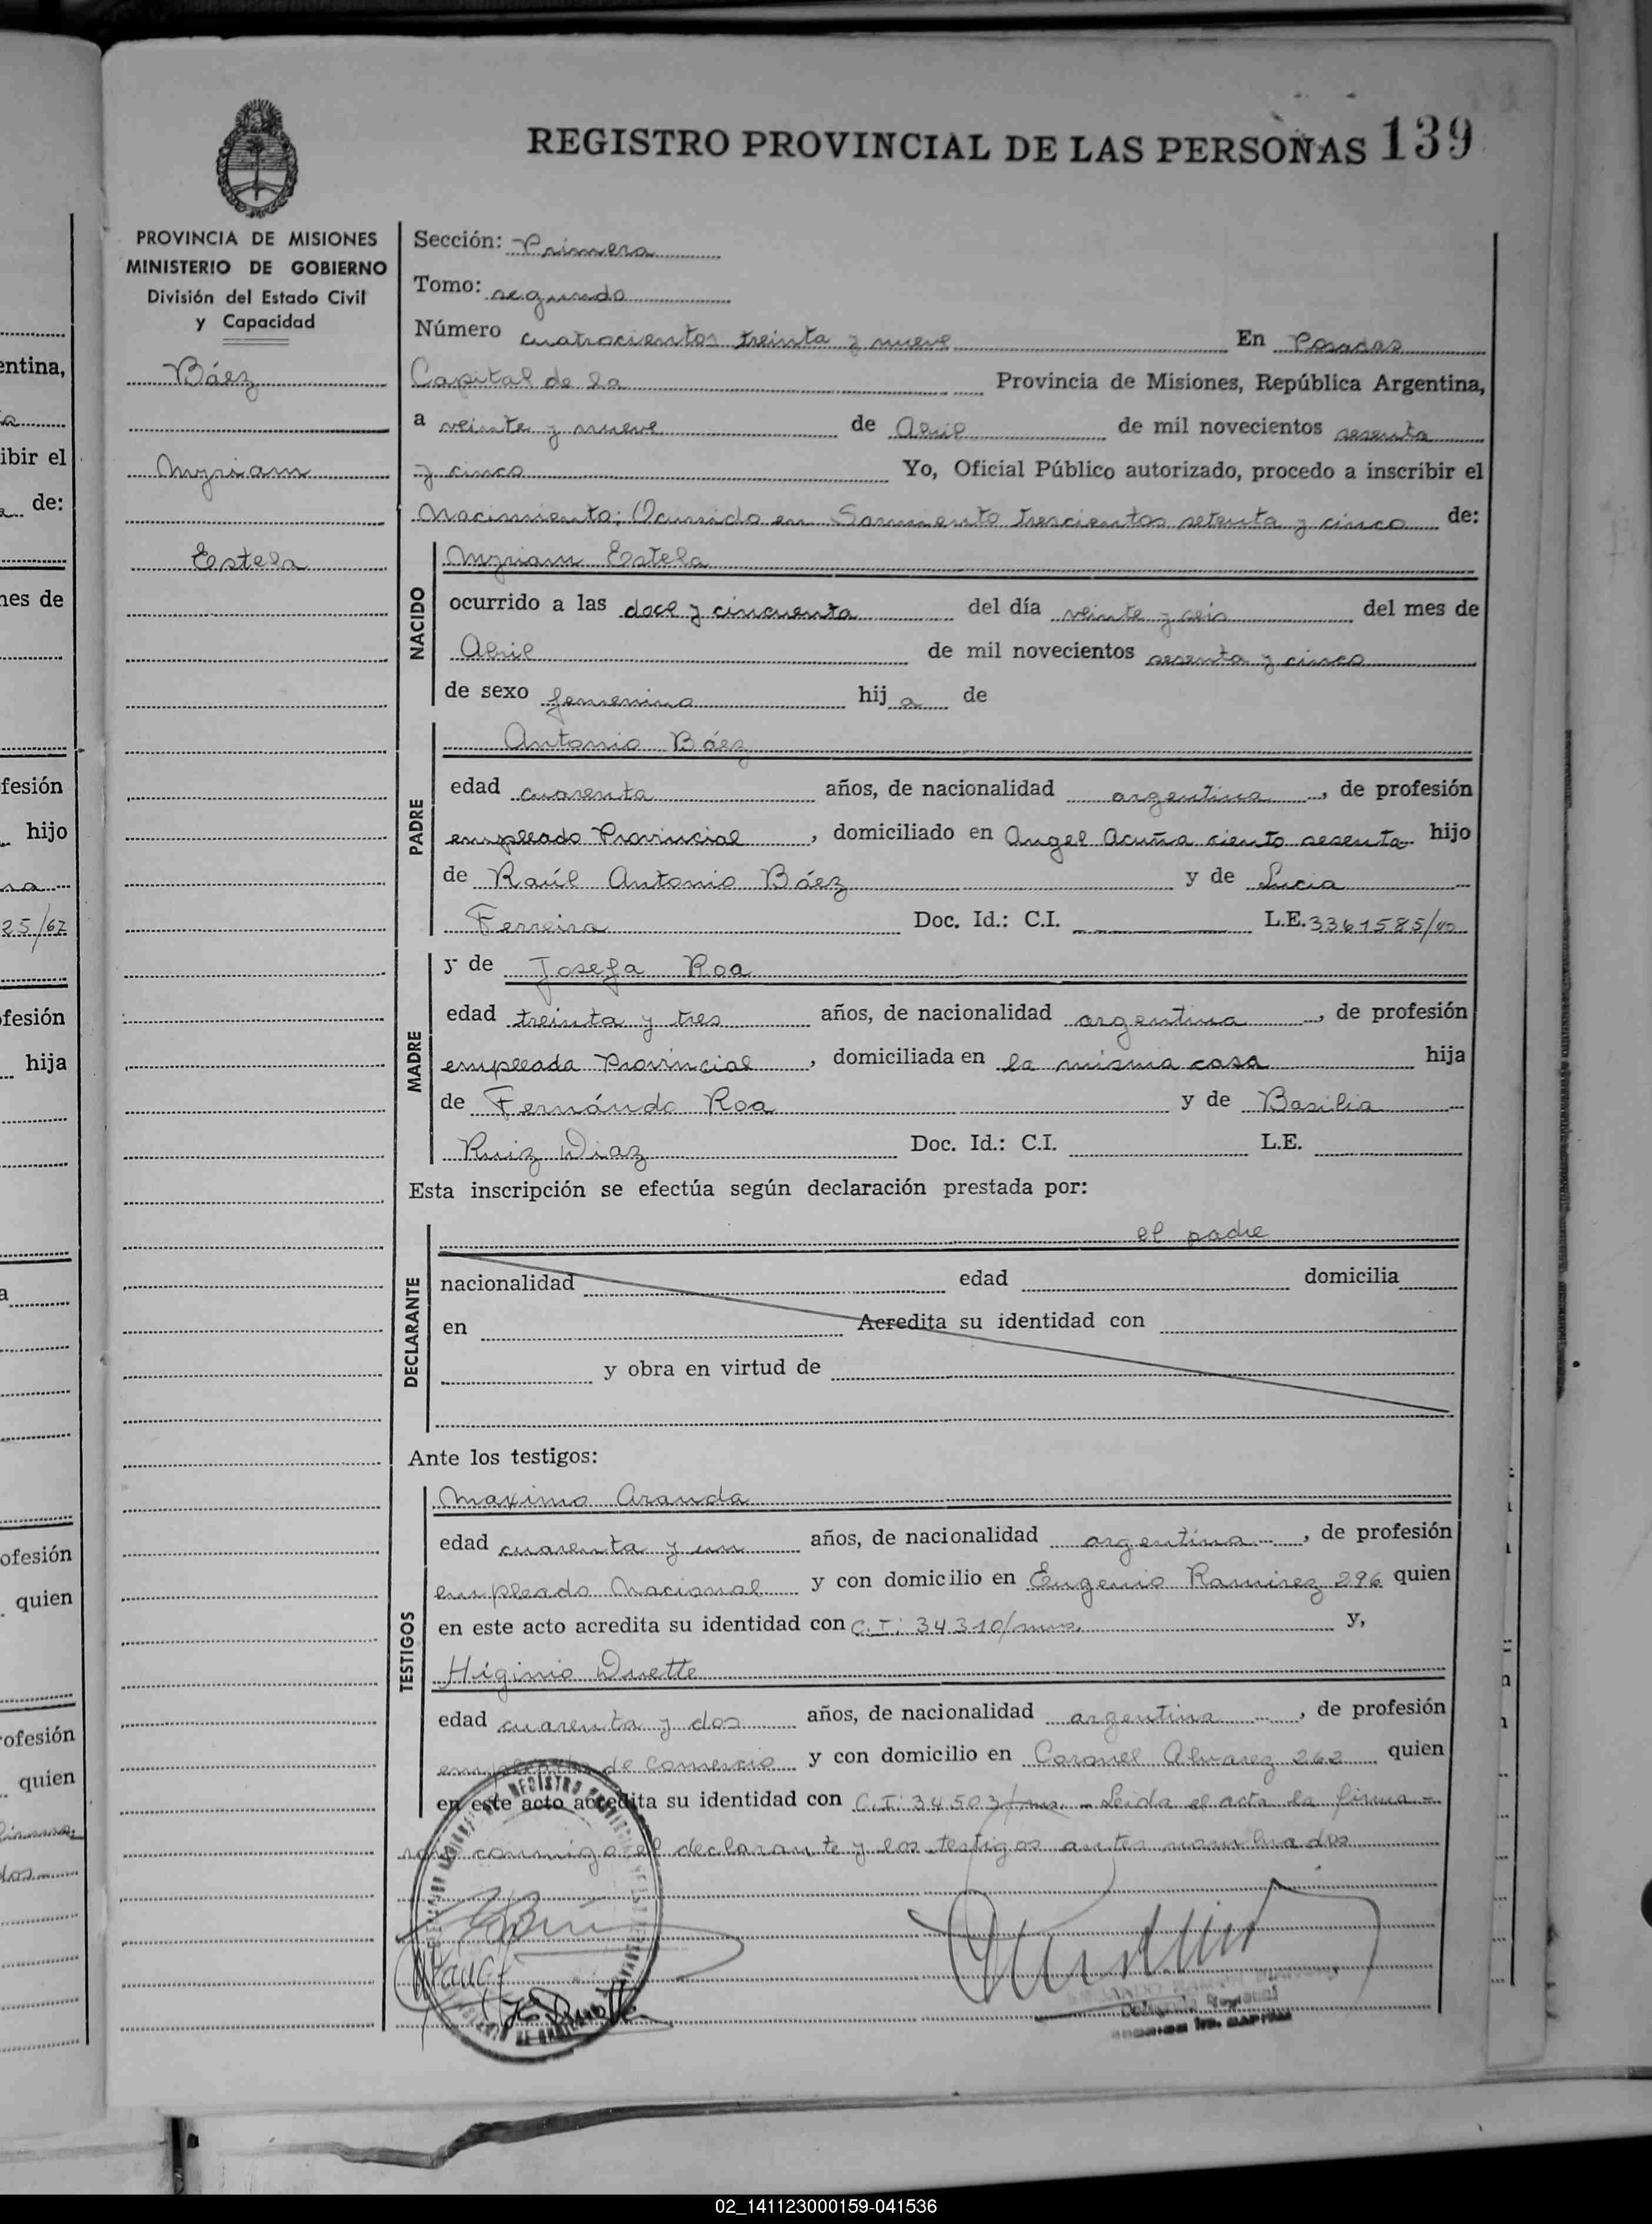 REGISTRO PROVINCIAL DE LAS PERSONAS 139
PROVINCIA DE MISIONES
MINISTERIO DE GOBIERNO
División del Estado Civil
y Capacidad
Báez
Myriam
Estela
Sección: Primera
Tomo: segundo
Número cuatrocientos treinta y nueve En Posadas
Capital de la Provincia de Misiones, República Argentina,
a veinte y nueve de Abril de mil novecientos sesenta
y cinco Yo, Oficial Público autorizado, procedo a inscribir el
Nacimiento; Ocurrido en Sarmiento trescientos setenta y cinco de:
NACIDO
Myriam Estela
ocurrido a las doce y cincuenta del día veinte y seis del mes de
Abril de mil novecientos sesenta y cinco
de sexo femenino hija de
PADRE
Antonio Báez
edad cuarenta años, de nacionalidad argentina, de profesión
empleado Provincial, domiciliado en Angel Acuña ciento sesenta hijo
de Raúl Antonio Báez y de Lucia
Ferreira Doc. Id.: C.I. L.E. 3361585/
MADRE
y de Josefa Roa
edad treinta y tres años, de nacionalidad argentina, de profesión
empleada Provincial, domiciliada en la misma casa hija
de Fernándo Roa y de Basilia
Ruiz Diaz Doc. Id.: C.I. L.E.
Esta inscripción se efectúa según declaración prestada por:
DECLARANTE
el padre
nacionalidad edad domicilia
en Acredita su identidad con
y obra en virtud de
Ante los testigos:
TESTIGOS
Maximo Aranda
edad cuarenta y un años, de nacionalidad argentina, de profesión
empleado Nacional y con domicilio en Eugenio Ramirez 296 quien
en este acto acredita su identidad con C.I: 34310/mns. y,
Higinio Duette
edad cuarenta y dos años, de nacionalidad argentina, de profesión
empleado de comercio y con domicilio en Coronel Alvarez 262 quien
en este acto acredita su identidad con C.I: 34503/ms. - Leida el acta la firma-
ron conmigo el declarante y los testigos antes nombrados
entina,
ibir el
de:
nes de
fesión
hijo
25/67
fesión
hija
ofesión
quien
rofesión
quien
02_141123000159-041536